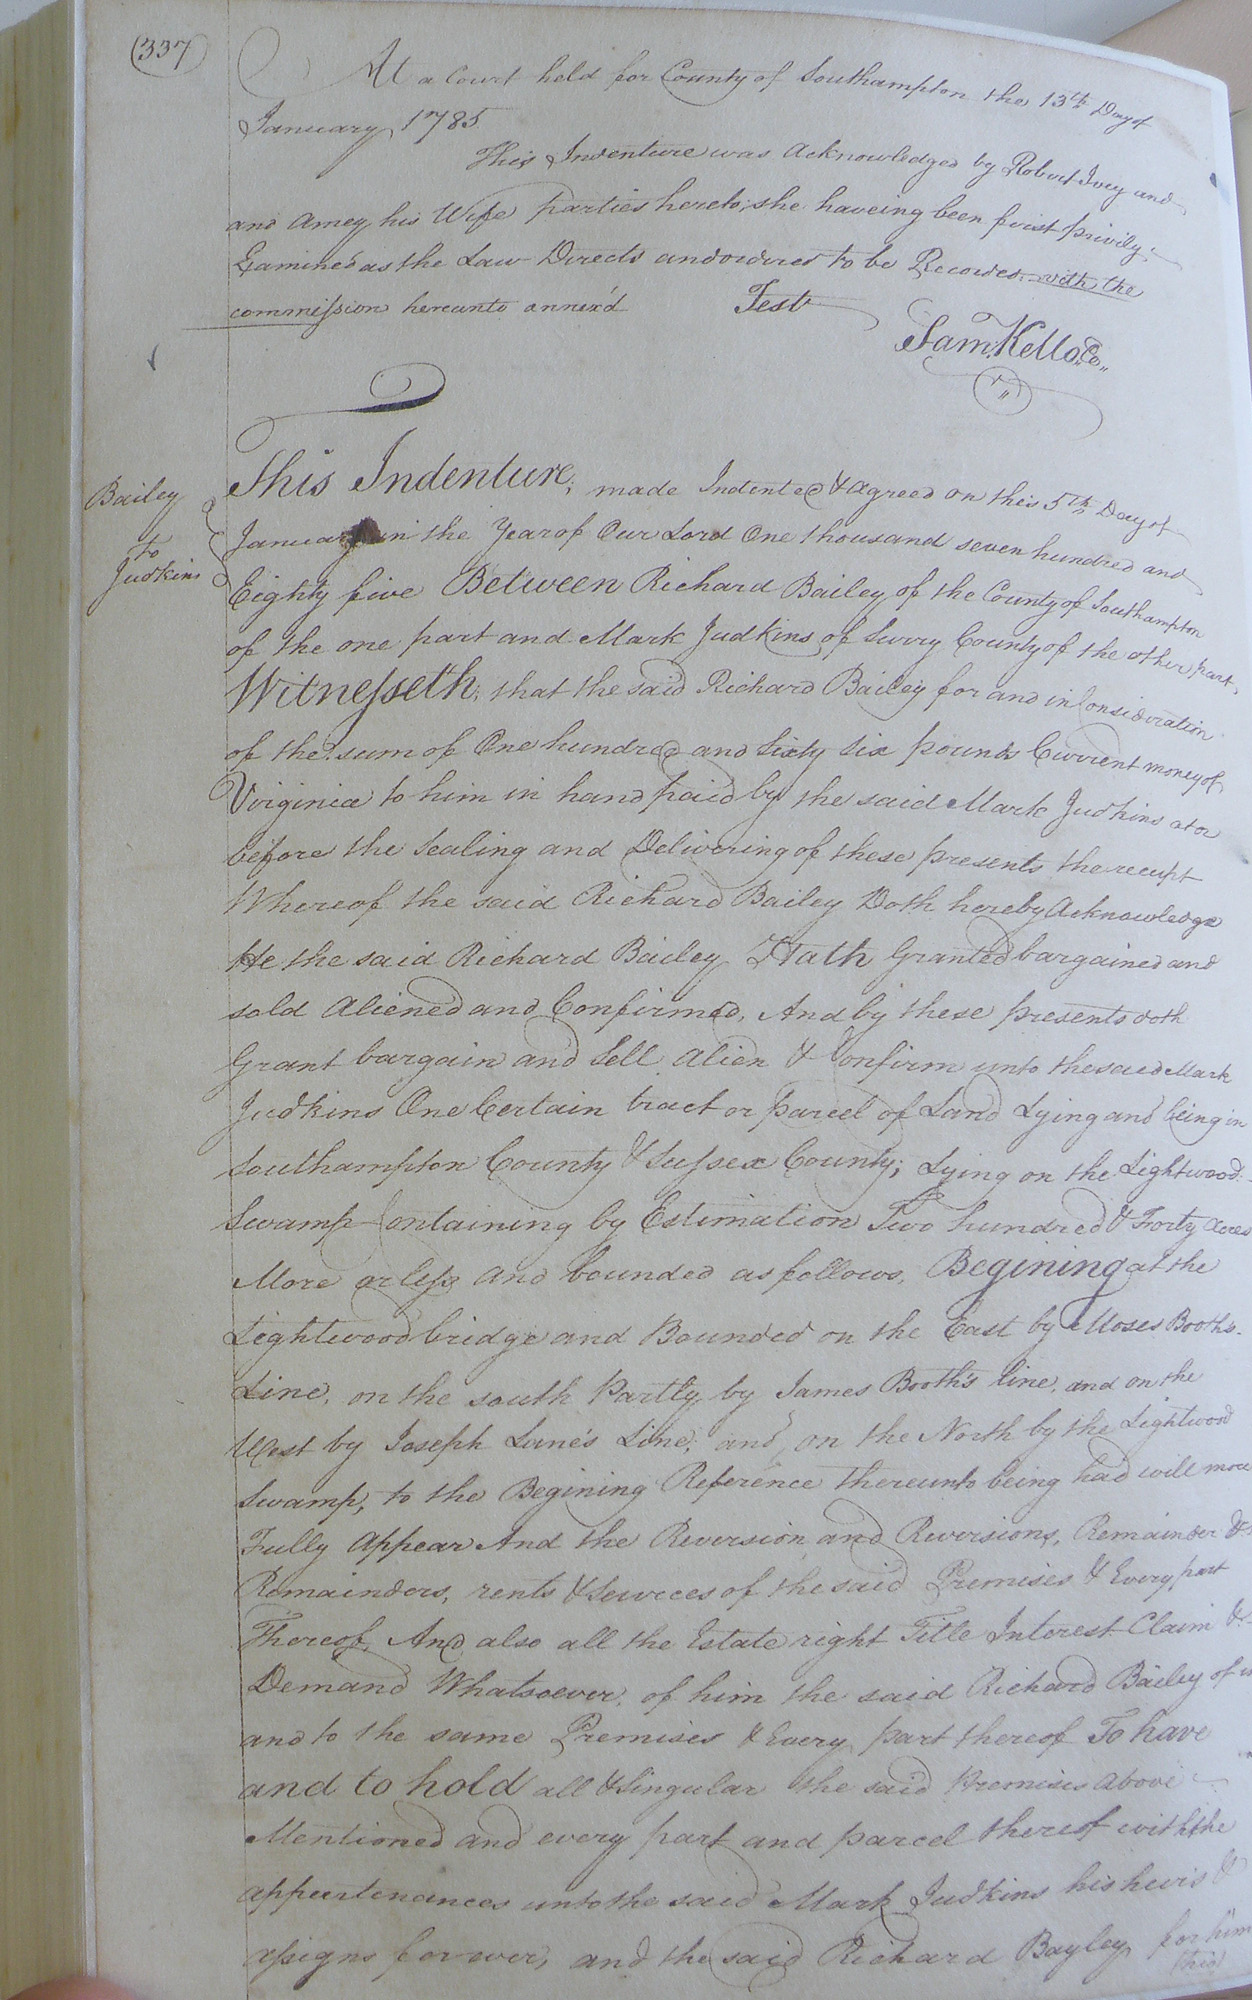 (337)
At a Court held for County of Southampton the 13th Day of
January 1785
This Indenture was Acknowledged by Robert Ivey and
and Amey his Wife parties hereto; she haveing been first privily
Examined as the Law Directs and ordered to be Recorded with the
commission hereunto annex'd Test
Sam. Kello Co
Bailey
to
Judkins
This Indenture; made Indented & Agreed on this 5th Day of
January in the Year of Our Lord One thousand seven hundred and
Eighty five Between Richard Bailey of the County of Southampton
of the one part and Mark Judkins of Surry County of the other part,
Witnesseth, that the said Richard Bailey for and in Consideration
of the sum of One hundred and Sixty Six pounds Current money of
Virginia to him in hand paid by the said Mark Judkins at or
before the Sealing and Delivering of these presents the receipt
Whereof the said Richard Bailey Doth hereby Acknowledge
He the said Richard Bailey Hath Granted bargained and
sold Aliened and Confirmed, And by these presents doth
Grant bargain and Sell Alien & Confirm unto the said Mark
Judkins One Certain tract or parcel of Land Lying and being in
Southampton County & Sussex County; Lying on the Lightwood
Swamp Containing by Estimation Two hundred & Forty Acres
More or less and bounded as follows, Begining at the
Lightwood bridge and Bounded on the East by Moses Booth's
Line, on the south Partly by James Booth's line, and on the
West by Joseph Lane's Line; and on the North by the Lightwood
Swamp, to the Begining Reference thereunto being had will more
Fully Appear And the Reversion and Reversions, Remainder &
Remainders, rents & Services of the said Premises & Every part
Thereof, And also all the Estate right Title Interest Claim &
Demand Whatsoever, of him the said Richard Bailey of in
and to the same Premises & Every part thereof To have
and to hold all & Singular the said Premises Above
Mentioned and every part and parcel thereof with the
appurtenances unto the said Mark Judkins his heirs &
assigns forever, and the said Richard Bayley for him
his